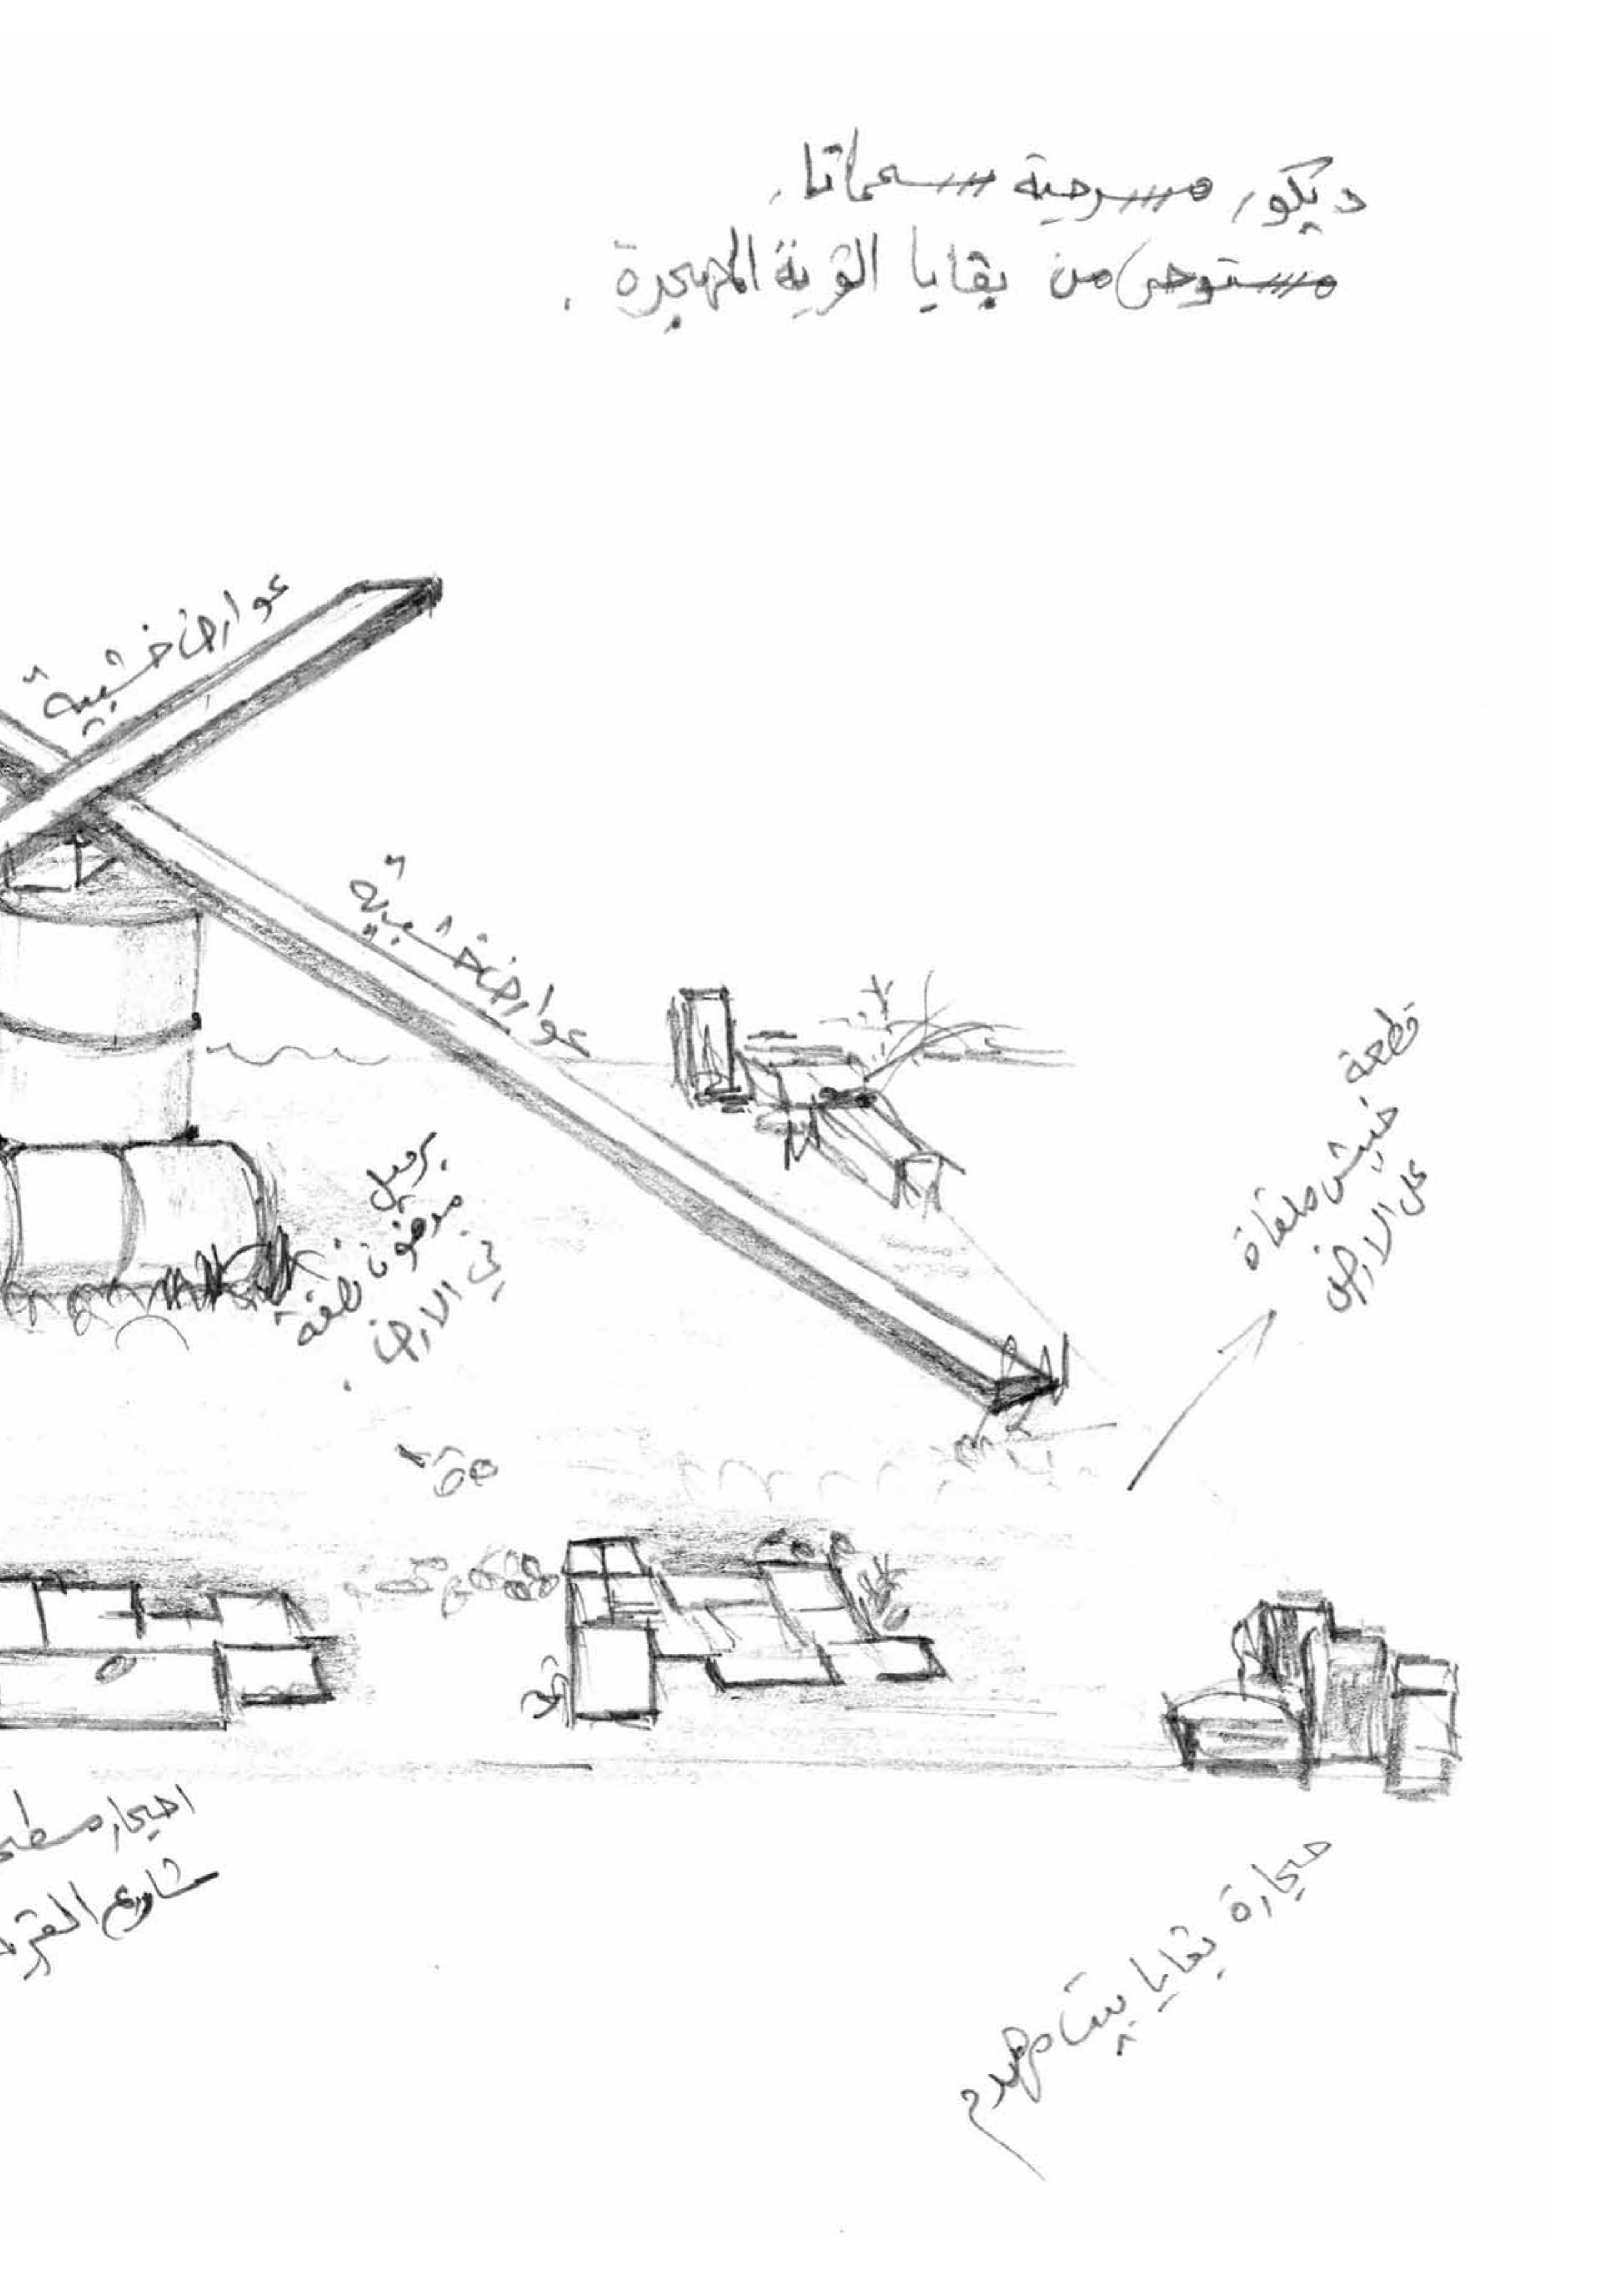 ديكور مسرحية سحماتا.
مستوحى من بقايا القرية المهجرة.
عوارض خشبية
عوارض خشبية
برميل
مدفون نصفه
في الارض.
قطعة
خيش ملقاة
على الارض
احجار
شارع
حجارة بقايا بيت مهدم